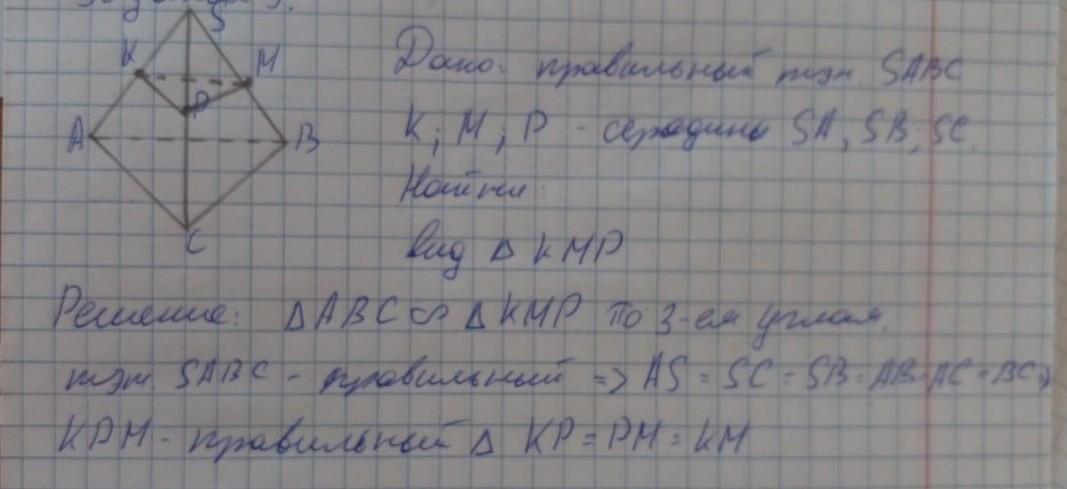 S
K M
P
A B
C
Дано: правильный тэт. SABC
K; M; P - середины SA, SB, SC.
Найти:
вид Δ KMP
Решение: ΔABC ∽ ΔKMP по 3-ем углам.
тэт. SABC - правильный => AS = SC = SB = AB = AC = BC =>
KPM - правильный Δ KP = PM = KM